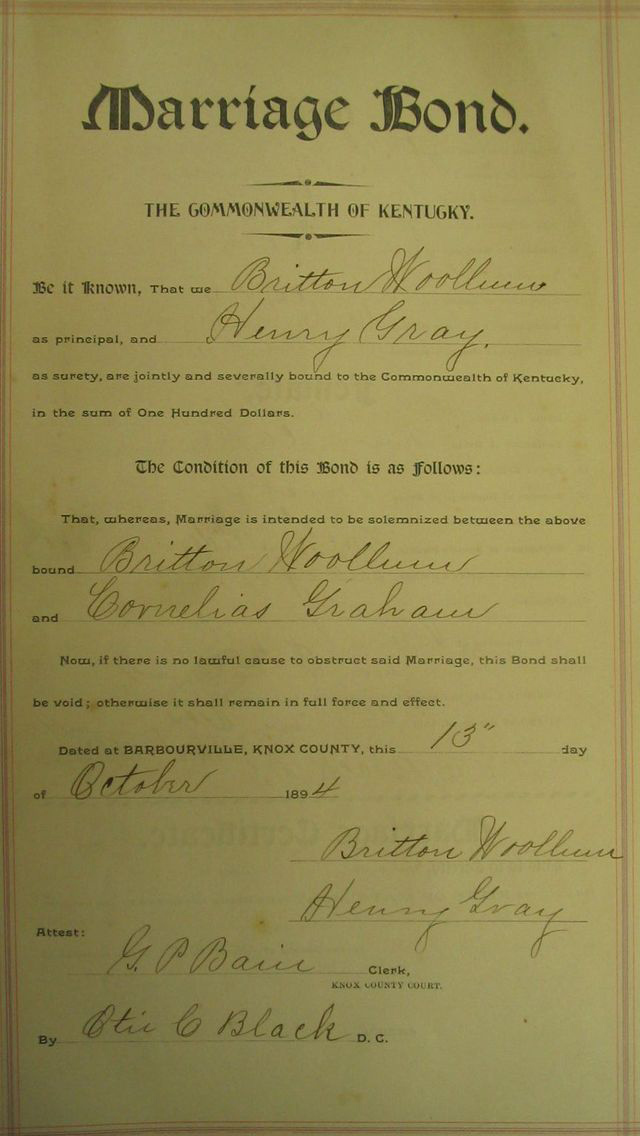 Marriage Bond.
THE COMMONWEALTH OF KENTUCKY.
Be it Known, That we Britton Woollum
as principal, and Henry Gray.
as surety, are jointly and severally bound to the Commonwealth of Kentucky,
in the sum of One Hundred Dollars.
The Condition of this Bond is as Follows:
That, whereas, Marriage is intended to be solemnized between the above
bound Britton Woollum
and Cornelias Graham
Now, if there is no lawful cause to obstruct said Marriage, this Bond shall
be void; otherwise it shall remain in full force and effect.
Dated at BARBOURVILLE, KNOX COUNTY, this 13" day
of October 1894
Britton Woollum
Henry Gray
Attest:
G. P Bain Clerk,
KNOX COUNTY COURT.
By Otis C Black D. C.